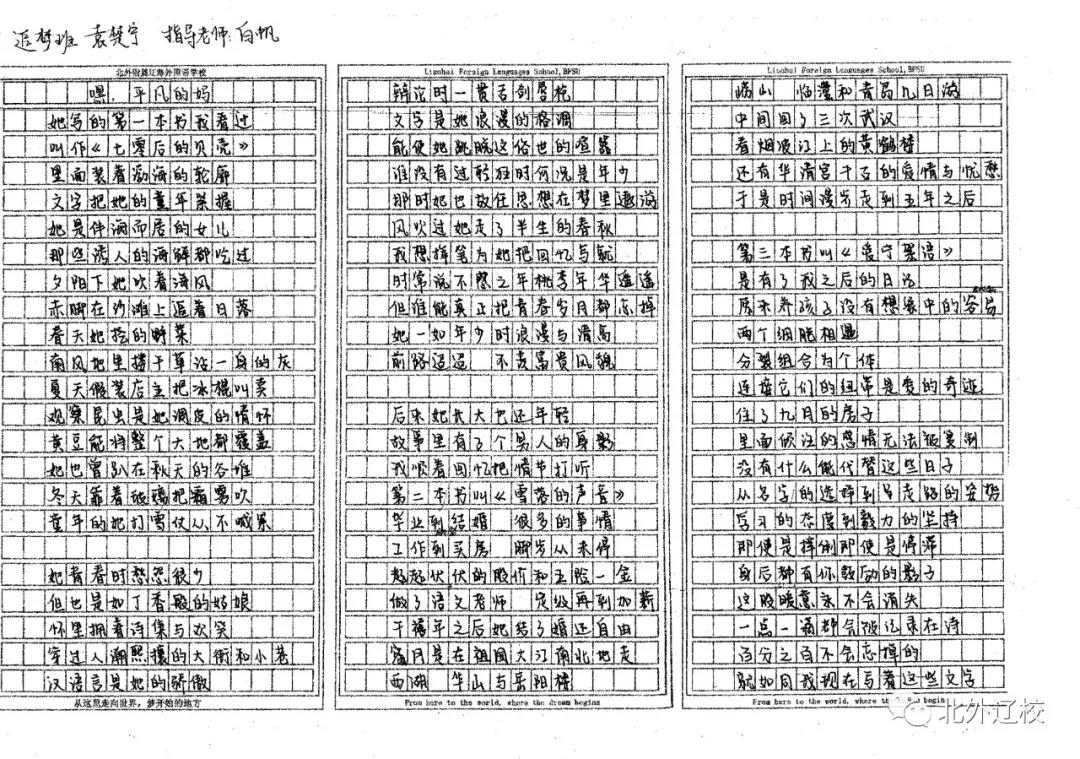 追梦班 袁楚宁 指导老师:白帆
北外附属辽海外国语学校
嘿，平凡的妈
她写的第一本书我看过
叫作《七零后的贝壳》
里面装着渤海的轮廓
文字把她的童年紧握
她是伴海而居的女儿
那些诱人的海鲜都吃过
夕阳下她吹着海风
赤脚在沙滩上追着日落
春天她挖的野菜
南风地里播于草没一身的灰
夏天假装店主把冰棍叫卖
观察昆虫是她调皮的情怀
黄豆能将整个大地都覆盖
她也曾趴在秋天的谷堆
冬天靠着玻璃把霜雾吹
童年的她打雪仗从不喊累
她青春时愁怨很少
但也是如丁香般的姑娘
怀里拥着诗集与欢笑
穿过人潮熙攘的大街和小巷
汉语言是她的骄傲
从这里走向世界，梦开始的地方
Liaohai Foreign Languages School,BFSU
辩论时一贯舌剑唇枪
文字是她浪漫的格调
能使她跳脱这俗世的喧嚣
谁没有过轻狂时何况是年少
那时她也放任思想在梦里遨游
风吹过她走了半生的春秋
我想择笔为她把回忆写就
时常说不惑之年桃李年华遥遥
但谁能真正把青春岁月都忘掉
她一如年少时浪漫与清高
前路迢迢 不羡富贵风貌
后来她长大也还年轻
故事里有了个男人的身影
我顺着回忆把情节打听
第二本书叫《雪落的声音》
毕业到结婚 很多的事情
工作到买房 脚步从未停
起起伏伏的股价和五险一金
做了语文老师 定级再到加薪
千禧年之后她结了婚还自由
蜜月是在祖国大江南北地走
西湖 华山与岳阳楼
From here to the world, where the dream begins
Liaohai Foreign Languages School,BFSU
崂山 临潼和青岛九日游
中间回了三次武汉
看烟波江上的黄鹤楼
还有华清宫千古的爱情与忧愁
于是时间漫步走到五年之后
第三本书叫《爱宁絮语》
是有了我之后的日子
原来养孩子没有想象中的容易
两个细胞相遇
分裂组合为个体
连接它们的纽带是爱的奇迹
住了九月的房子
里面倾注的感情无法被复制
没有什么能代替这些日子
从名字的选择到学走路的姿势
学习的态度到毅力的坚持
即使是摔倒即使是停滞
身后都有你鼓励的影子
这股暖意永不会消失
一点一滴都会被记录在诗
百分之百不会忘掉的
就如同我现在写着这些文字
From here to the world, where the dream begins
北外辽校